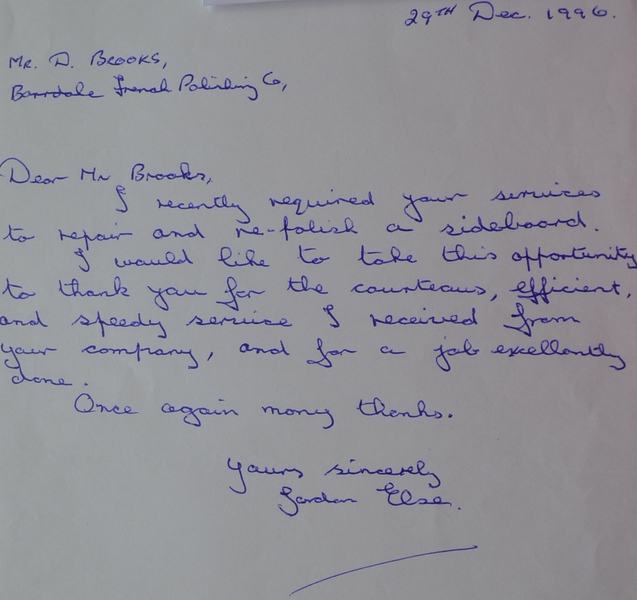 29TH Dec. 1996.
Mr. D. Brooks,
French Polishing Co,
Dear Mr Brooks,
I recently required your services
to repair and re-polish a sideboard.
I would like to take this opportunity
to thank you for the courteous, efficient,
and speedy service I received from
your company, and for a job excellantly
done.
Once again many thanks.
Yours sincerely
Else.